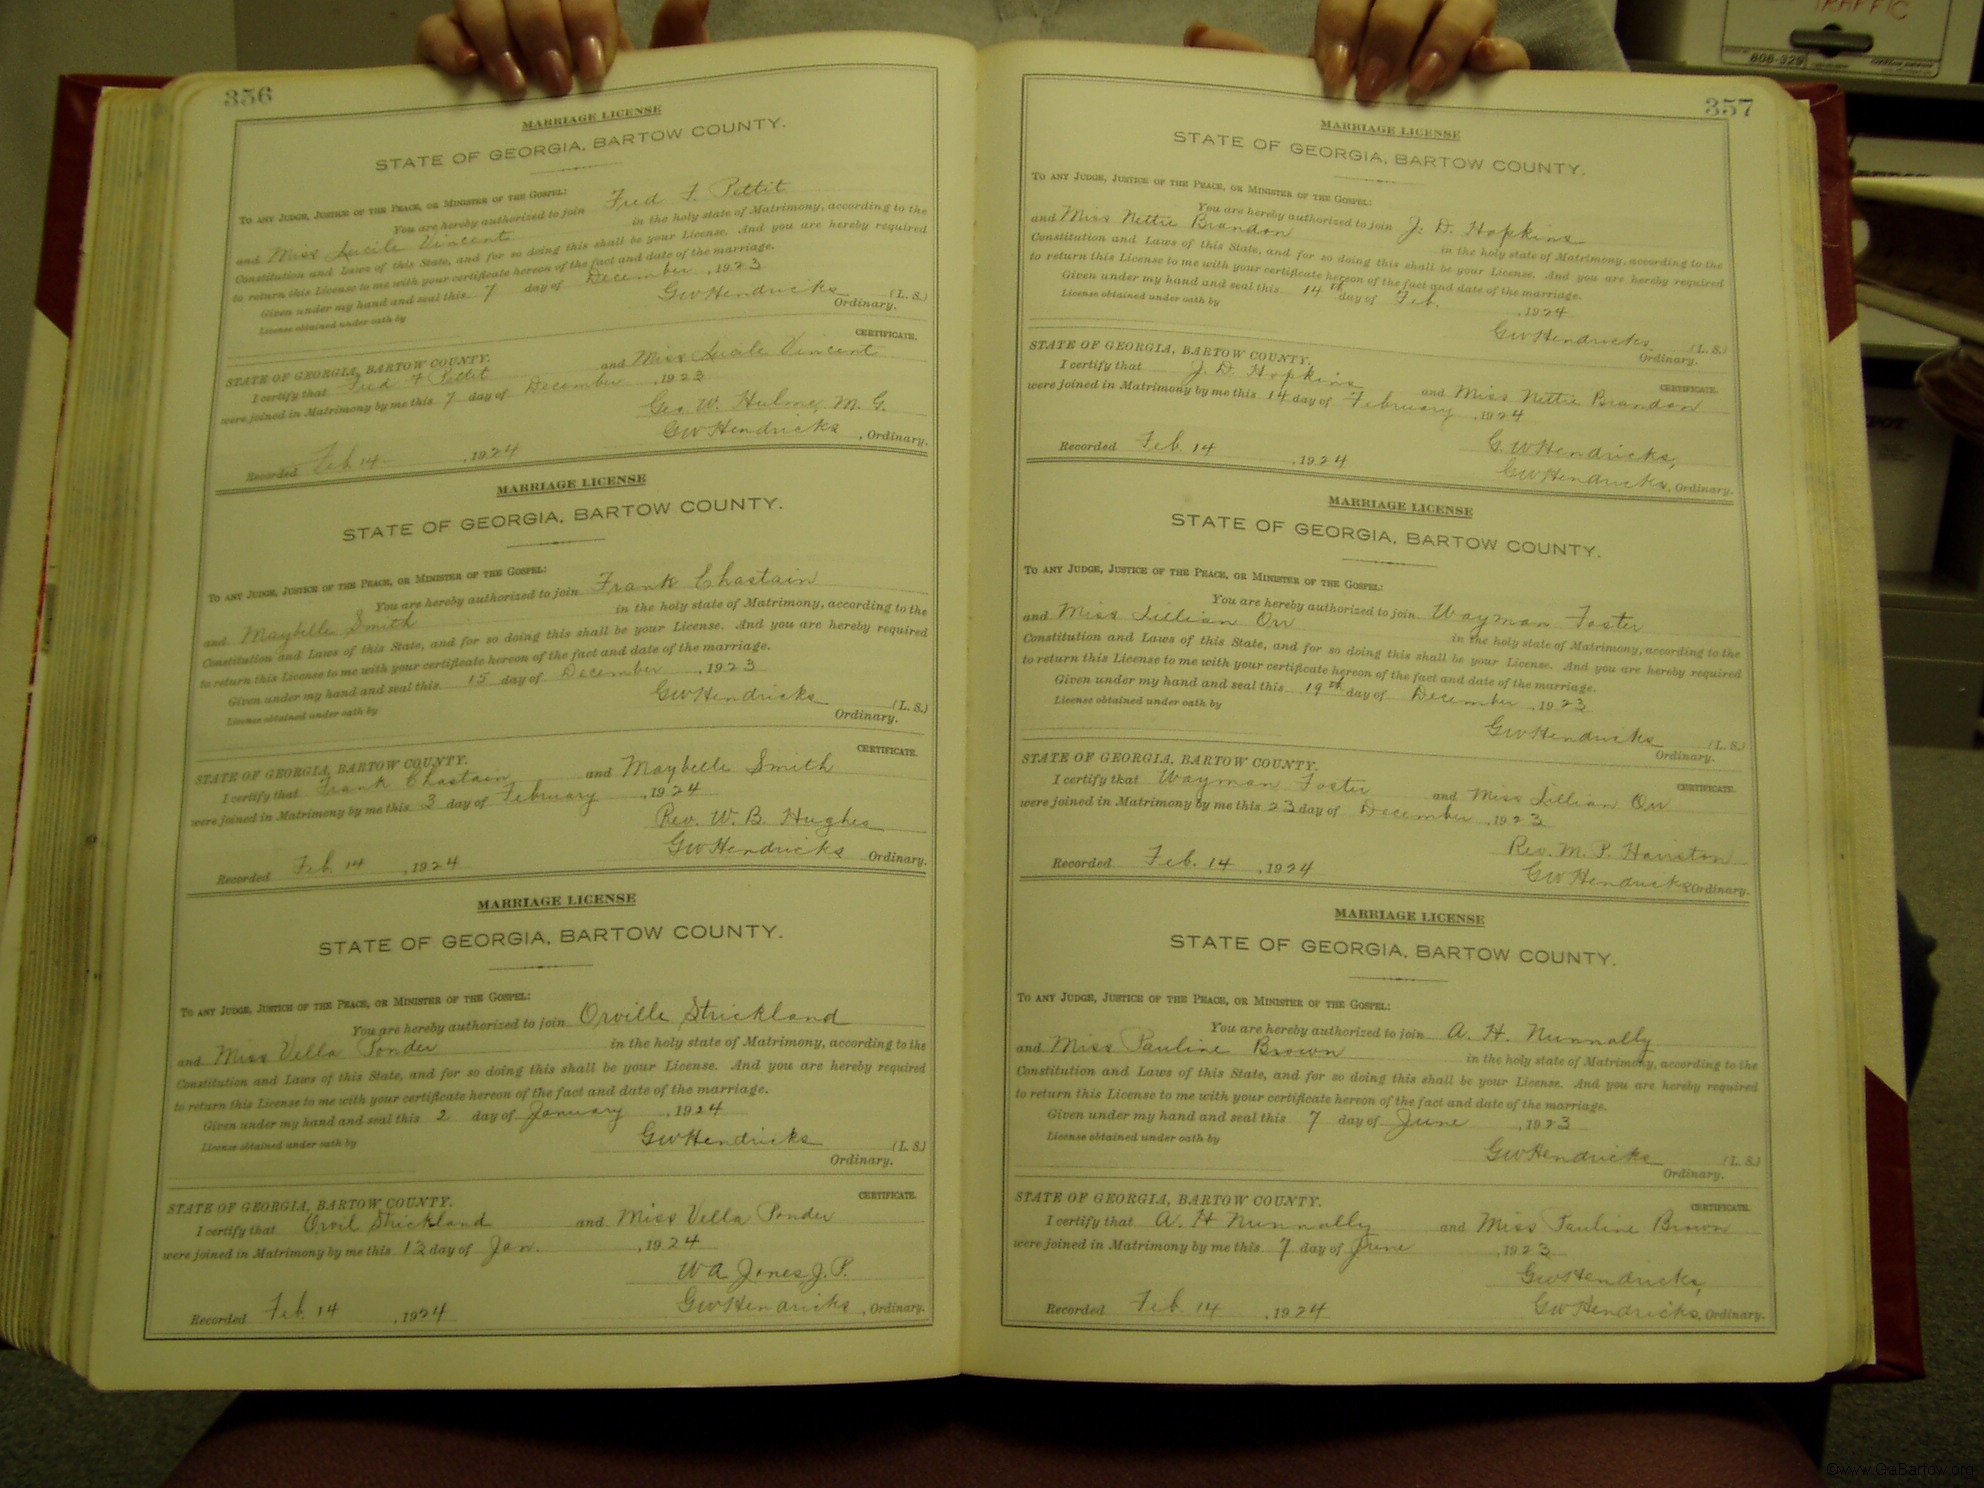 356
MARRIAGE LICENSE
STATE OF GEORGIA, BARTOW COUNTY.
TO ANY JUDGE, JUSTICE OF THE PEACE, OR MINISTER OF THE GOSPEL:
You are hereby authorized to join Fred F. Pettit
and Miss Lucile Vincent in the holy state of Matrimony, according to the
Constitution and Laws of this State, and for so doing this shall be your License. And you are hereby required
to return this License to me with your certificate hereon of the fact and date of the marriage.
Given under my hand and seal this 7 day of December, 1923
GW Hendricks (L. S.)
License obtained under oath by Ordinary.
CERTIFICATE.
STATE OF GEORGIA, BARTOW COUNTY.
I certify that Fred F Pettit and Miss Lucile Vincent
were joined in Matrimony by me this 7 day of December, 1923
Geo. W. Hulme, M. G.
Recorded Feb 14, 1924 GW Hendricks, Ordinary.
MARRIAGE LICENSE
STATE OF GEORGIA, BARTOW COUNTY.
TO ANY JUDGE, JUSTICE OF THE PEACE, OR MINISTER OF THE GOSPEL:
You are hereby authorized to join Frank Chastain
and Maybelle Smith in the holy state of Matrimony, according to the
Constitution and Laws of this State, and for so doing this shall be your License. And you are hereby required
to return this License to me with your certificate hereon of the fact and date of the marriage.
Given under my hand and seal this 15 day of December, 1923
GW Hendricks (L. S.)
License obtained under oath by Ordinary.
CERTIFICATE.
STATE OF GEORGIA, BARTOW COUNTY.
I certify that Frank Chastain and Maybelle Smith
were joined in Matrimony by me this 3 day of February, 1924
Rev. W. B. Hughes
Recorded Feb. 14, 1924 GW Hendricks Ordinary.
MARRIAGE LICENSE
STATE OF GEORGIA, BARTOW COUNTY.
TO ANY JUDGE, JUSTICE OF THE PEACE, OR MINISTER OF THE GOSPEL:
You are hereby authorized to join Orville Strickland
and Miss Vella Ponder in the holy state of Matrimony, according to the
Constitution and Laws of this State, and for so doing this shall be your License. And you are hereby required
to return this License to me with your certificate hereon of the fact and date of the marriage.
Given under my hand and seal this 2 day of January, 1924
GW Hendricks (L. S.)
License obtained under oath by Ordinary.
CERTIFICATE.
STATE OF GEORGIA, BARTOW COUNTY.
I certify that Orvil Strickland and Miss Vella Ponder
were joined in Matrimony by me this 12 day of Jan., 1924
W A Jones J. P.
Recorded Feb. 14, 1924 GW Hendricks, Ordinary.
357
MARRIAGE LICENSE
STATE OF GEORGIA, BARTOW COUNTY.
TO ANY JUDGE, JUSTICE OF THE PEACE, OR MINISTER OF THE GOSPEL:
You are hereby authorized to join J. D. Hopkins
and Miss Nettie Brandon in the holy state of Matrimony, according to the
Constitution and Laws of this State, and for so doing this shall be your License. And you are hereby required
to return this License to me with your certificate hereon of the fact and date of the marriage.
Given under my hand and seal this 14th day of Feb., 1924
License obtained under oath by
GW Hendricks (L. S.)
Ordinary.
STATE OF GEORGIA, BARTOW COUNTY.
CERTIFICATE.
I certify that J. D. Hopkins and Miss Nettie Brandon
were joined in Matrimony by me this 14 day of February, 1924
G. W Hendricks,
Recorded Feb 14, 1924 GW Hendricks, Ordinary.
MARRIAGE LICENSE
STATE OF GEORGIA, BARTOW COUNTY.
TO ANY JUDGE, JUSTICE OF THE PEACE, OR MINISTER OF THE GOSPEL:
You are hereby authorized to join Wayman Foster
and Miss Lillian Orr in the holy state of Matrimony, according to the
Constitution and Laws of this State, and for so doing this shall be your License. And you are hereby required
to return this License to me with your certificate hereon of the fact and date of the marriage.
Given under my hand and seal this 19th day of December, 1923
License obtained under oath by
GW Hendricks (L. S.)
Ordinary.
STATE OF GEORGIA, BARTOW COUNTY.
CERTIFICATE.
I certify that Wayman Foster and Miss Lillian Orr
were joined in Matrimony by me this 23 day of December, 1923
Rev. M. P. Hairston
Recorded Feb. 14, 1924 GW Hendricks, Ordinary.
MARRIAGE LICENSE
STATE OF GEORGIA, BARTOW COUNTY.
TO ANY JUDGE, JUSTICE OF THE PEACE, OR MINISTER OF THE GOSPEL:
You are hereby authorized to join A. H. Nunnally
and Miss Pauline Brown in the holy state of Matrimony, according to the
Constitution and Laws of this State, and for so doing this shall be your License. And you are hereby required
to return this License to me with your certificate hereon of the fact and date of the marriage.
Given under my hand and seal this 7 day of June, 1923
License obtained under oath by
GW Hendricks (L. S.)
Ordinary.
STATE OF GEORGIA, BARTOW COUNTY.
CERTIFICATE.
I certify that A. H Nunnally and Miss Pauline Brown
were joined in Matrimony by me this 7 day of June, 1923
GW Hendricks,
Recorded Feb. 14, 1924 GW Hendricks, Ordinary.
TRAFFIC
606-329
©www.GaBartow.org